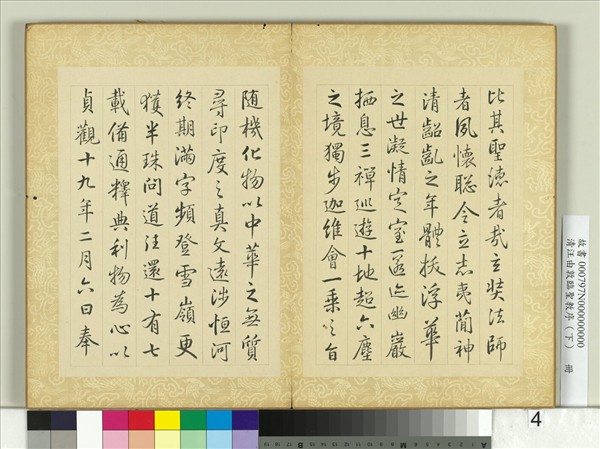 比其聖德者哉玄奘法師
者夙懷聰令立志夷簡神
清齠齔之年體拔浮華
之世凝情定室匿迹幽巖
栖息三禪巡遊十地超六塵
之境獨步迦維會一乘之旨
隨機化物以中華之無質
尋印度之真文遠涉恒河
終期滿字頻登雪嶺更
獲半珠問道往還十有七
載備通釋典利物為心以
貞觀十九年二月六日奉
故書 000797N000000000
清汪由敦臨聖教序(下) 冊
4